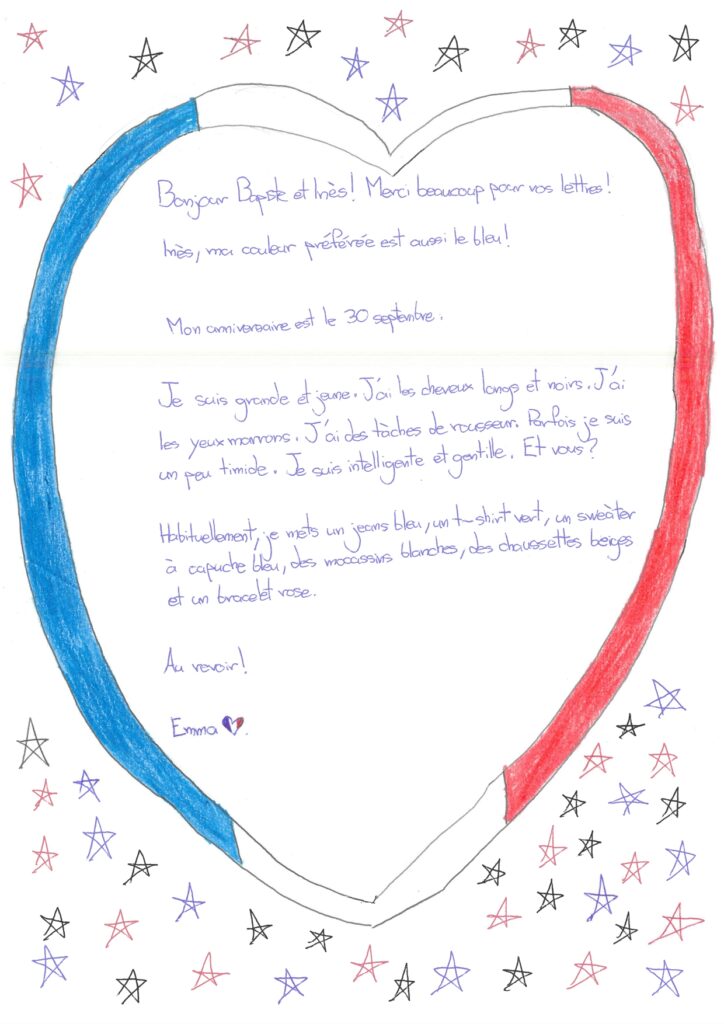 Bonjour Baptiste et Inès! Merci beaucoup pour vos lettres!
Inès, ma couleur préférée est aussi le bleu!
Mon anniversaire est le 30 septembre.
Je suis grande et jeune. J'ai les cheveux longs et noirs. J'ai
les yeux marrons. J'ai des tàches de rousseur. Parfois je suis
un peu timide. Je suis intelligente et gentille. Et vous?
Habituellement, je mets un jeans bleu, un t-shirt vert, un sweàter
à capuche bleu, des mocassins blanches, des chaussettes beiges
et un bracelet rose.
Au revoir!
Emma